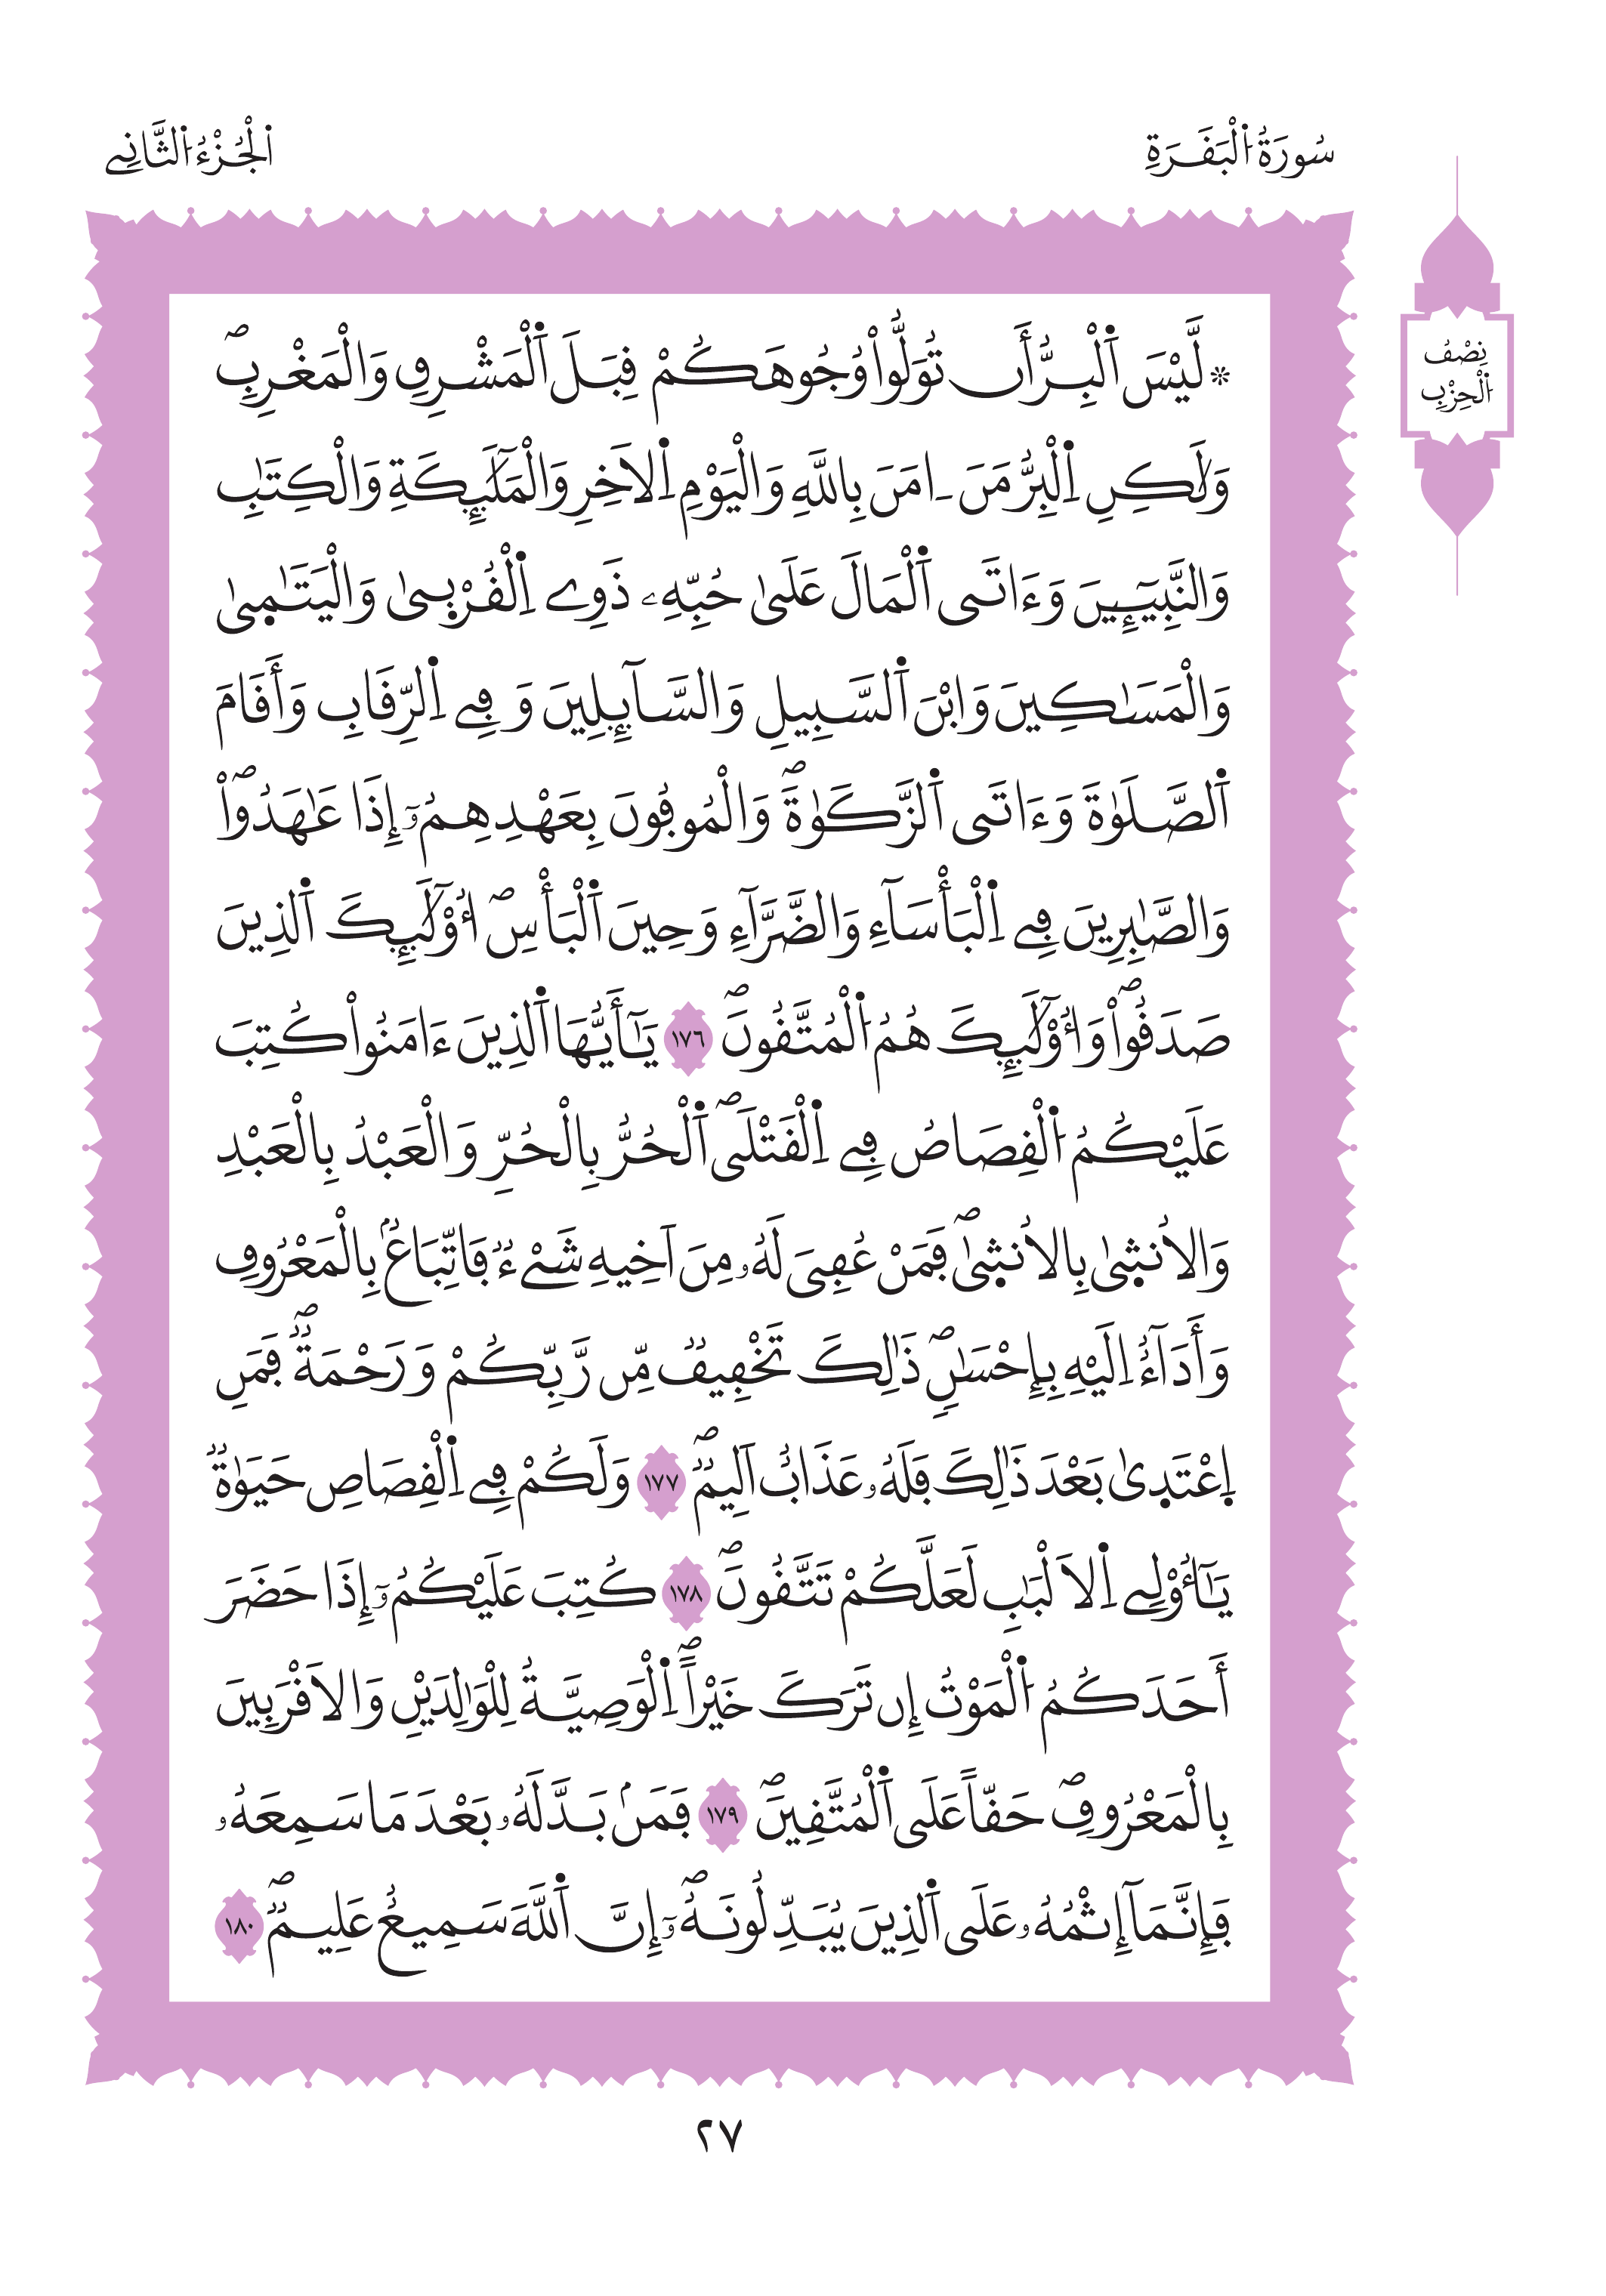 سُورَةُ اُ۬لْبَقَرَةِ
اَ۬لْجُزْءُ اُ۬لثَّانِے
نِصْفُ
اُ۬لْحِزْبِ
۞لَّيْسَ اَ۬لْبِرُّ أَن تُوَلُّواْ وُجُوهَكُمْ قِبَلَ اَ۬لْمَشْرِقِ وَالْمَغْرِبِۖ
وَلَٰكِنِ اِ۬لْبِرُّ مَنَ اٰمَنَ بِاللَّهِ وَالْيَوْمِ اِ۬لَاخِرِ وَالْمَلَٰٓئِكَةِ وَالْكِتَٰبِ
وَالنَّبِيٓـِٕينَ وَءَاتَى اَ۬لْمَالَ عَلَىٰ حُبِّهِۦ ذَوِے اِ۬لْقُرْب۪ىٰ وَالْيَتَٰم۪ىٰ
وَالْمَسَٰكِينَ وَابْنَ اَ۬لسَّبِيلِ وَالسَّآئِلِينَ وَفِے اِ۬لرِّقَابِ وَأَقَامَ
اَ۬لصَّلَوٰةَ وَءَاتَى اَ۬لزَّكَوٰةَۖ وَالْمُوفُونَ بِعَهْدِهِمُۥٓ إِذَا عَٰهَدُواْۖ
وَالصَّٰبِرِينَ فِے اِ۬لْبَأْسَآءِ وَالضَّرَّآءِ وَحِينَ اَ۬لْبَأْسِۖ أُوْلَٰٓئِكَ اَ۬لذِينَ
صَدَقُواْۖ وَأُوْلَٰٓئِكَ هُمُ اُ۬لْمُتَّقُونَۖ ١٧٦ يَٰٓأَيُّهَا اَ۬لذِينَ ءَامَنُواْ كُتِبَ
عَلَيْكُمُ اُ۬لْقِصَاصُ فِے اِ۬لْقَتْلَىۖ اَ۬لْحُرُّ بِالْحُرِّ وَالْعَبْدُ بِالْعَبْدِ
وَالُانث۪ىٰ بِالُانث۪ىٰۖ فَمَنْ عُفِىَ لَهُۥ مِنَ اَخِيهِ شَےْءٞ فَاتِّبَاعُۢ بِالْمَعْرُوفِ
وَأَدَآءٌ اِلَيْهِ بِإِحْسَٰنٖۖ ذَٰلِكَ تَخْفِيفٞ مِّن رَّبِّكُمْ وَرَحْمَةٞۖ فَمَنِ
اِ۪عْتَد۪ىٰ بَعْدَ ذَٰلِكَ فَلَهُۥ عَذَابٌ اَلِيمٞۖ ١٧٧ وَلَكُمْ فِے اِ۬لْقِصَاصِ حَيَوٰةٞ
يَٰٓأُوْلِے اِ۬لَالْبَٰبِ لَعَلَّكُمْ تَتَّقُونَۖ ١٧٨ كُتِبَ عَلَيْكُمُۥٓ إِذَا حَضَرَ
أَحَدَكُمُ اُ۬لْمَوْتُ إِن تَرَكَ خَيْراًۖ اِ۬لْوَصِيَّةُ لِلْوَٰلِدَيْنِ وَالَاقْرَبِينَ
بِالْمَعْرُوفِۖ حَقّاً عَلَى اَ۬لْمُتَّقِينَۖ ١٧٩ فَمَنۢ بَدَّلَهُۥ بَعْدَ مَا سَمِعَهُۥ
فَإِنَّمَآ إِثْمُهُۥ عَلَى اَ۬لذِينَ يُبَدِّلُونَهُۥٓۖ إِنَّ اَ۬للَّهَ سَمِيعٌ عَلِيمٞۖ ١٨٠
٢٧